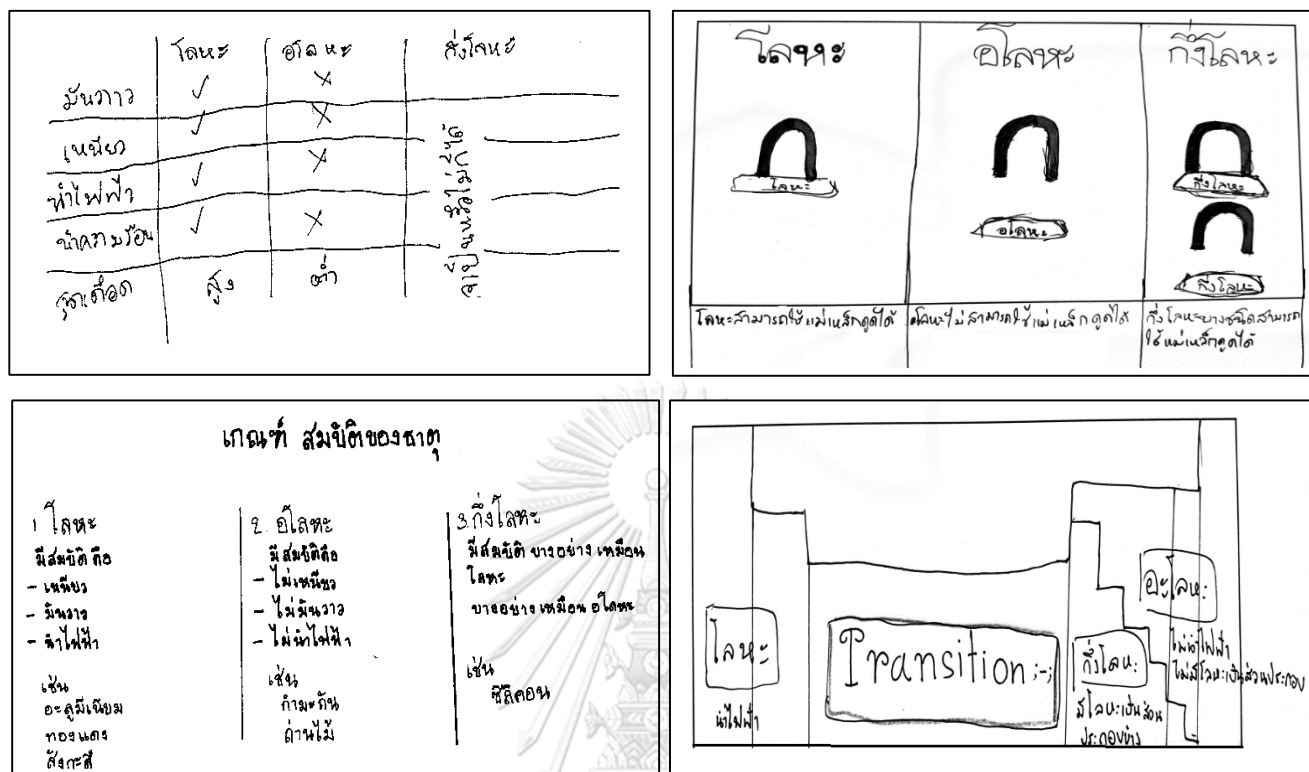 โลหะ อโลหะ กึ่งโลหะ
มันวาว ✓ ✗
เหนียว ✓ ✗
นำไฟฟ้า ✓ ✗
นำความร้อน ✓ ✗
จุดเดือด สูง ต่ำ
จะเป็นหรือไม่ก็ได้
โลหะ อโลหะ กึ่งโลหะ
โลหะ
อโลหะ
กึ่งโลหะ
กึ่งโลหะ
โลหะสามารถใช้แม่เหล็กดูดได้
อโลหะไม่สามารถใช้แม่เหล็กดูดได้
กึ่งโลหะบางชนิดสามารถ
ใช้แม่เหล็กดูดได้
เกณฑ์ สมบัติของธาตุ
1 โลหะ
มีสมบัติ คือ
- เหนียว
- มันวาว
- นำไฟฟ้า
เช่น
อะลูมิเนียม
ทองแดง
สังกะสี
2. อโลหะ
มีสมบัติคือ
- ไม่เหนียว
- ไม่มันวาว
- ไม่นำไฟฟ้า
เช่น
กำมะถัน
ถ่านไม้
3. กึ่งโลหะ
มีสมบัติ บางอย่าง เหมือน
โลหะ
บางอย่าง เหมือน อโลหะ
เช่น
ซิลิคอน
โลหะ
นำไฟฟ้า
Transition ;-;
กึ่งโลหะ
มีโลหะเป็นส่วน
ประกอบบ้าง
อะโลหะ
ไม่นำไฟฟ้า
ไม่มีโลหะเป็นส่วนประกอบ